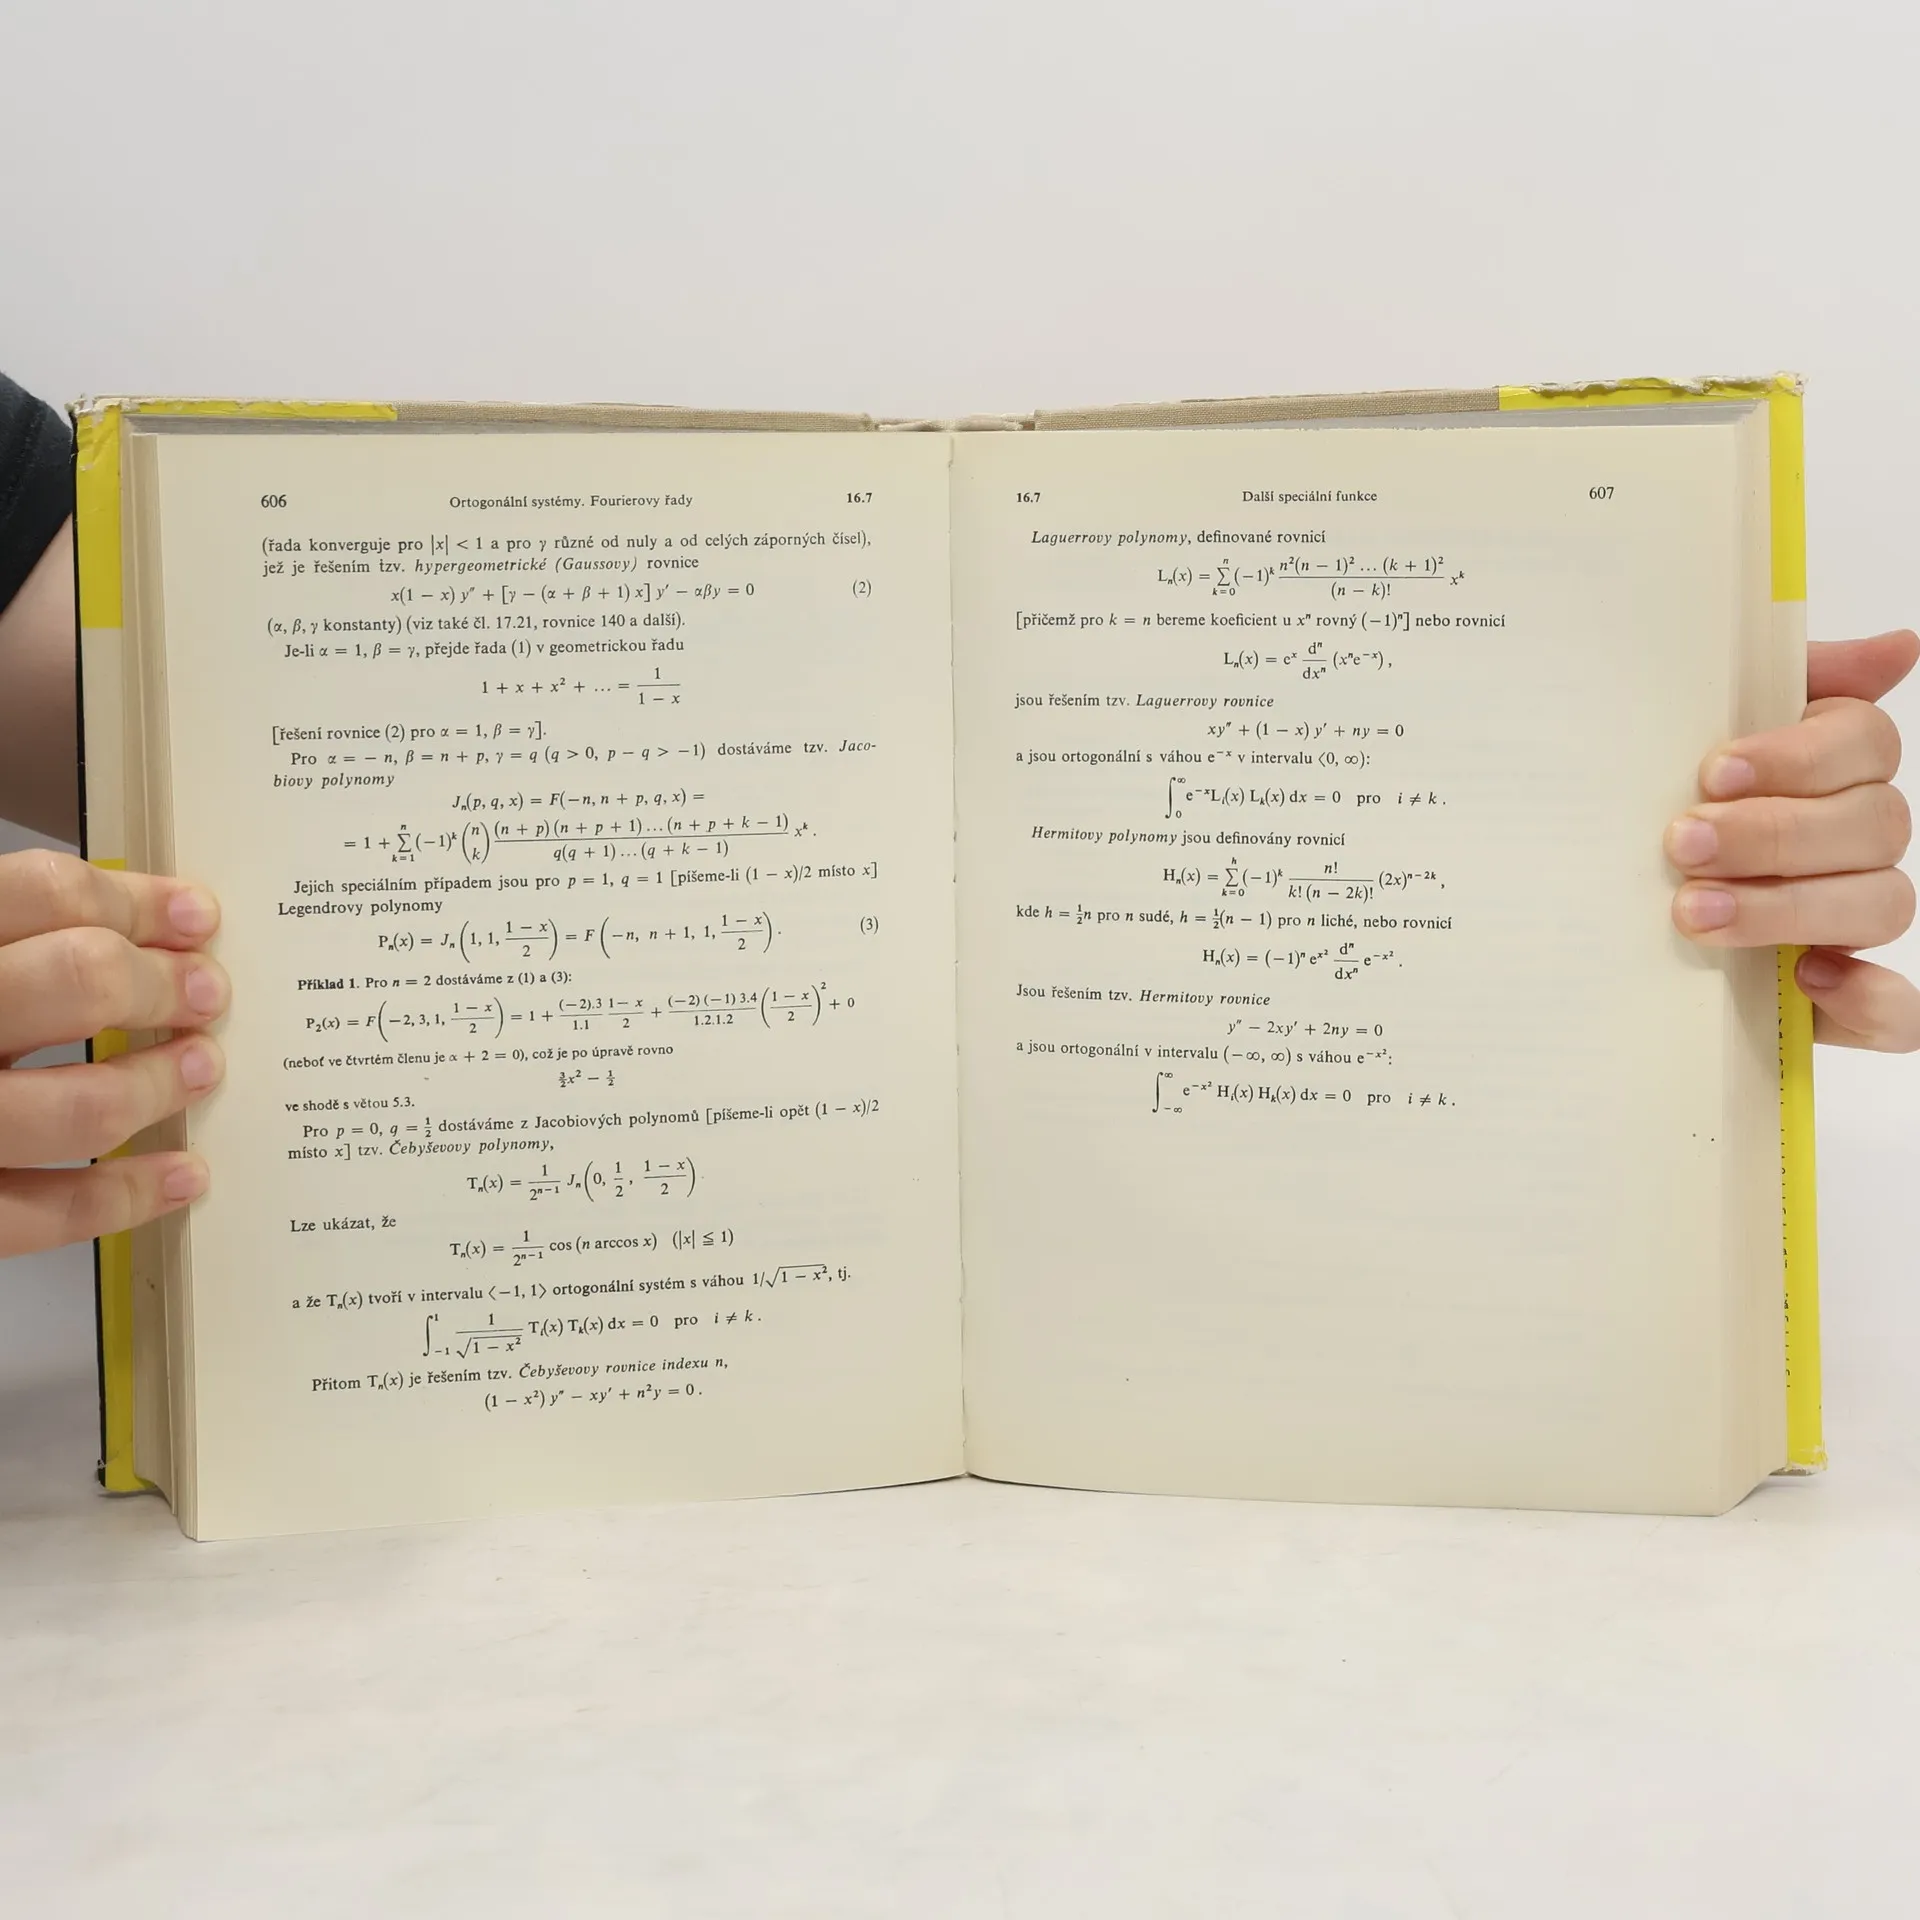 606 Ortogonální systémy. Fourierovy řady 16.7
(řada konverguje pro |x| < 1 a pro γ různé od nuly a od celých záporných čísel),
jež je řešením tzv. hypergeometrické (Gaussovy) rovnice
x(1 − x) y″ + [γ − (α + β + 1) x] y′ − αβy = 0 (2)
(α, β, γ konstanty) (viz také čl. 17.21, rovnice 140 a další).
Je-li α = 1, β = γ, přejde řada (1) v geometrickou řadu
1 + x + x² + ... = 1/(1 − x)
[řešení rovnice (2) pro α = 1, β = γ].
Pro α = − n, β = n + p, γ = q (q > 0, p − q > −1) dostáváme tzv. Jaco-
biovy polynomy
Jₙ(p, q, x) = F(−n, n + p, q, x) =
= 1 + ∑_{k=1}^{n} (−1)^k (n k) (n + p)(n + p + 1)...(n + p + k − 1) / q(q + 1)...(q + k − 1) x^k .
Jejich speciálním případem jsou pro p = 1, q = 1 [píšeme-li (1 − x)/2 místo x]
Legendrovy polynomy
Pₙ(x) = Jₙ(1, 1, (1 − x)/2) = F(−n, n + 1, 1, (1 − x)/2) . (3)
Příklad 1. Pro n = 2 dostáváme z (1) a (3):
P₂(x) = F(−2, 3, 1, (1 − x)/2) = 1 + (−2).3/1.1 (1 − x)/2 + (−2)(−1) 3.4/1.2.1.2 ((1 − x)/2)² + 0
(neboť ve čtvrtém členu je α + 2 = 0), což je po úpravě rovno
3/2 x² − 1/2
ve shodě s větou 5.3.
Pro p = 0, q = 1/2 dostáváme z Jacobiových polynomů [píšeme-li opět (1 − x)/2
místo x] tzv. Čebyševovy polynomy,
Tₙ(x) = 1/2^{n−1} Jₙ(0, 1/2, (1 − x)/2) .
Lze ukázat, že
Tₙ(x) = 1/2^{n−1} cos (n arccos x) (|x| ≦ 1)
a že Tₙ(x) tvoří v intervalu ⟨−1, 1⟩ ortogonální systém s váhou 1/√(1 − x²), tj.
∫_{−1}^{1} 1/√(1 − x²) Tᵢ(x) Tₖ(x) dx = 0 pro i ≠ k .
Přitom Tₙ(x) je řešením tzv. Čebyševovy rovnice indexu n,
(1 − x²) y″ − xy′ + n²y = 0 .
16.7 Další speciální funkce 607
Laguerrovy polynomy, definované rovnicí
Lₙ(x) = ∑_{k=0}^{n} (−1)^k n²(n − 1)² ... (k + 1)² / (n − k)! x^k
[přičemž pro k = n bereme koeficient u xⁿ rovný (−1)ⁿ] nebo rovnicí
Lₙ(x) = e^x dⁿ/dxⁿ (xⁿe^{−x}) ,
jsou řešením tzv. Laguerrovy rovnice
xy″ + (1 − x) y′ + ny = 0
a jsou ortogonální s váhou e^{−x} v intervalu ⟨0, ∞):
∫_{0}^{∞} e^{−x}Lᵢ(x) Lₖ(x) dx = 0 pro i ≠ k .
Hermitovy polynomy jsou definovány rovnicí
Hₙ(x) = ∑_{k=0}^{h} (−1)^k n! / k! (n − 2k)! (2x)^{n−2k} ,
kde h = 1/2 n pro n sudé, h = 1/2(n − 1) pro n liché, nebo rovnicí
Hₙ(x) = (−1)ⁿ e^{x²} dⁿ/dxⁿ e^{−x²} .
Jsou řešením tzv. Hermitovy rovnice
y″ − 2xy′ + 2ny = 0
a jsou ortogonální v intervalu (−∞, ∞) s váhou e^{−x²}:
∫_{−∞}^{∞} e^{−x²} Hᵢ(x) Hₖ(x) dx = 0 pro i ≠ k .